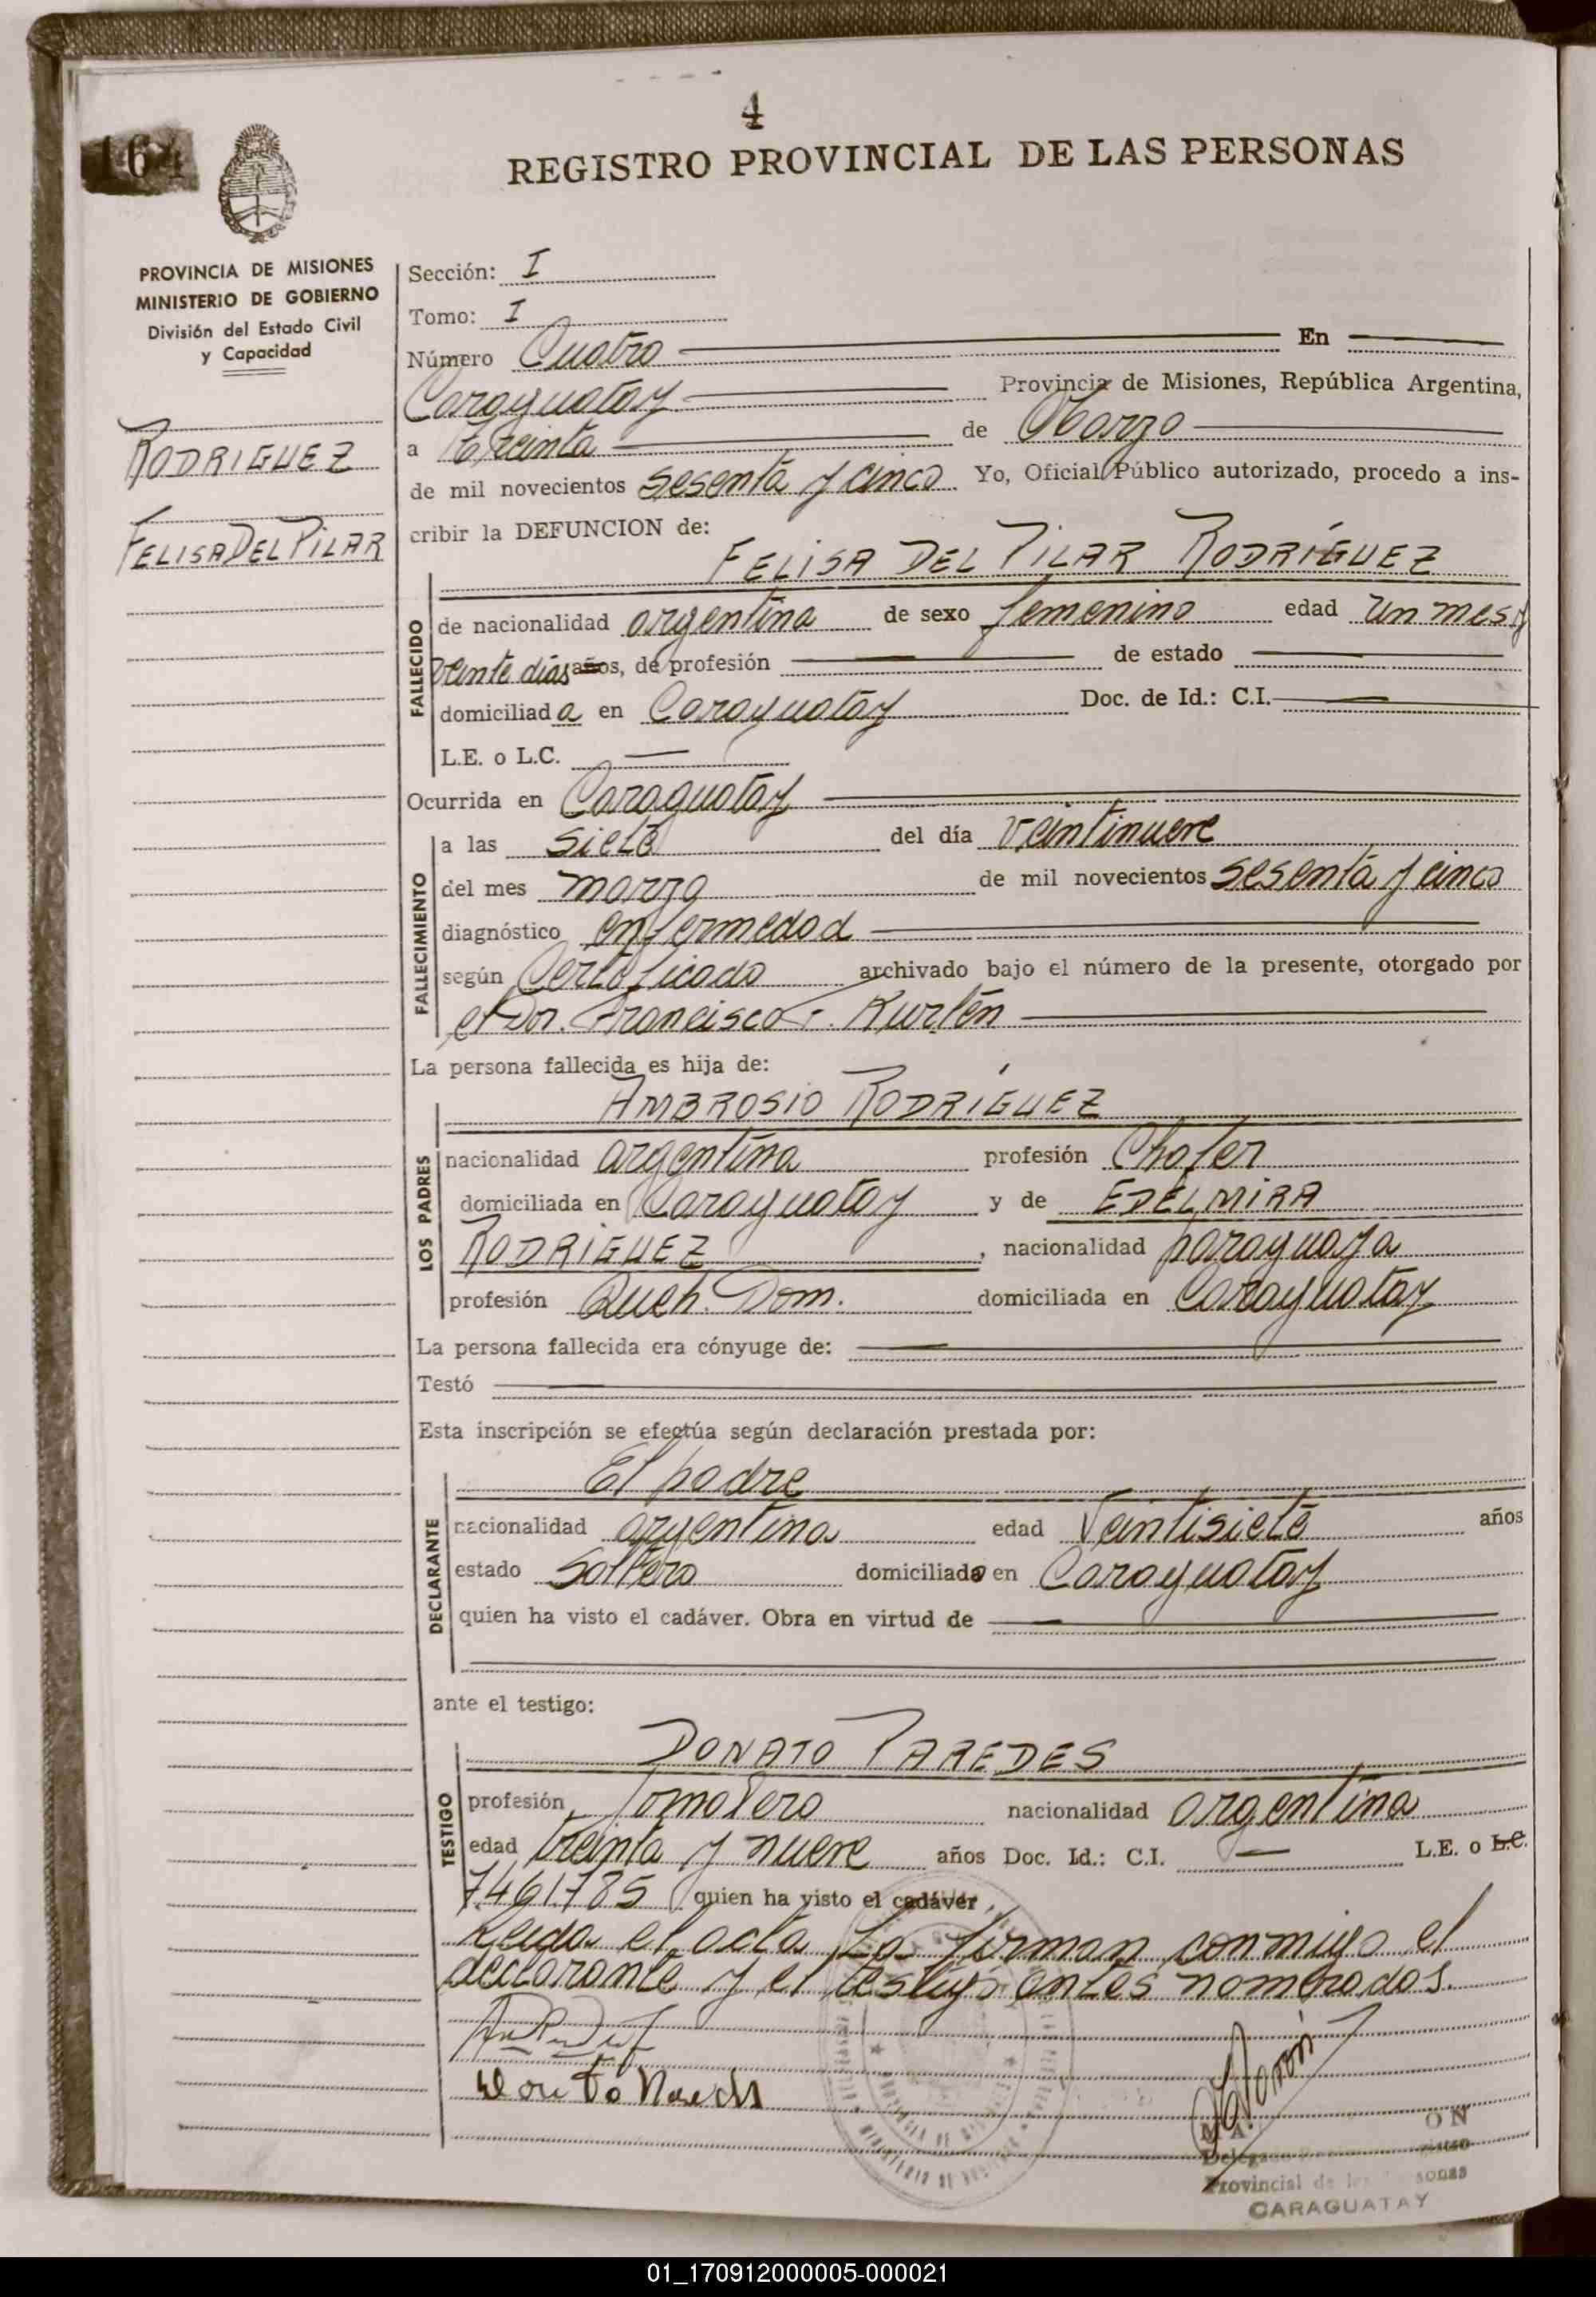 4
164
REGISTRO PROVINCIAL DE LAS PERSONAS
PROVINCIA DE MISIONES
MINISTERIO DE GOBIERNO
División del Estado Civil
y Capacidad
RODRIGUEZ
FELISA DEL PILAR
Sección: I
Tomo: I
Número Cuatro En
Caraguatay Provincia de Misiones, República Argentina,
a Treinta de Marzo
de mil novecientos sesenta y cinco Yo, Oficial Público autorizado, procedo a ins-
cribir la DEFUNCION de:
FELISA DEL PILAR RODRÍGUEZ
FALLECIDO
de nacionalidad argentina de sexo femenino edad un mes y
veinte días años, de profesión de estado
domiciliada en Caraguatay Doc. de Id.: C.I.
L.E. o L.C.
Ocurrida en Caraguatay
FALLECIMIENTO
a las siete del día veintinueve
del mes marzo de mil novecientos sesenta y cinco
diagnóstico enfermedad
según Certificado archivado bajo el número de la presente, otorgado por
el Dr. Francisco F. Kurtén
La persona fallecida es hija de:
AMBROSIO RODRÍGUEZ
LOS PADRES
nacionalidad argentina profesión Chofer
domiciliada en Caraguatay y de EDELMIRA
RODRIGUEZ, nacionalidad paraguaya
profesión Queh. Dom. domiciliada en Caraguatay
La persona fallecida era cónyuge de:
Testó
Esta inscripción se efectúa según declaración prestada por:
El padre
DECLARANTE
nacionalidad argentina edad Veintisiete años
estado Soltero domiciliado en Caraguatay
quien ha visto el cadáver. Obra en virtud de
ante el testigo:
DONATO PAREDES
TESTIGO
profesión Jornalero nacionalidad argentina
edad treinta y nueve años Doc. Id.: C.I. L.E. o L.C.
7461785 quien ha visto el cadáver,
Leída el acta la firman conmigo el
declarante y el testigo antes nombrados.
Delegado
Provincial de las Personas
CARAGUATAY
01_170912000005-000021